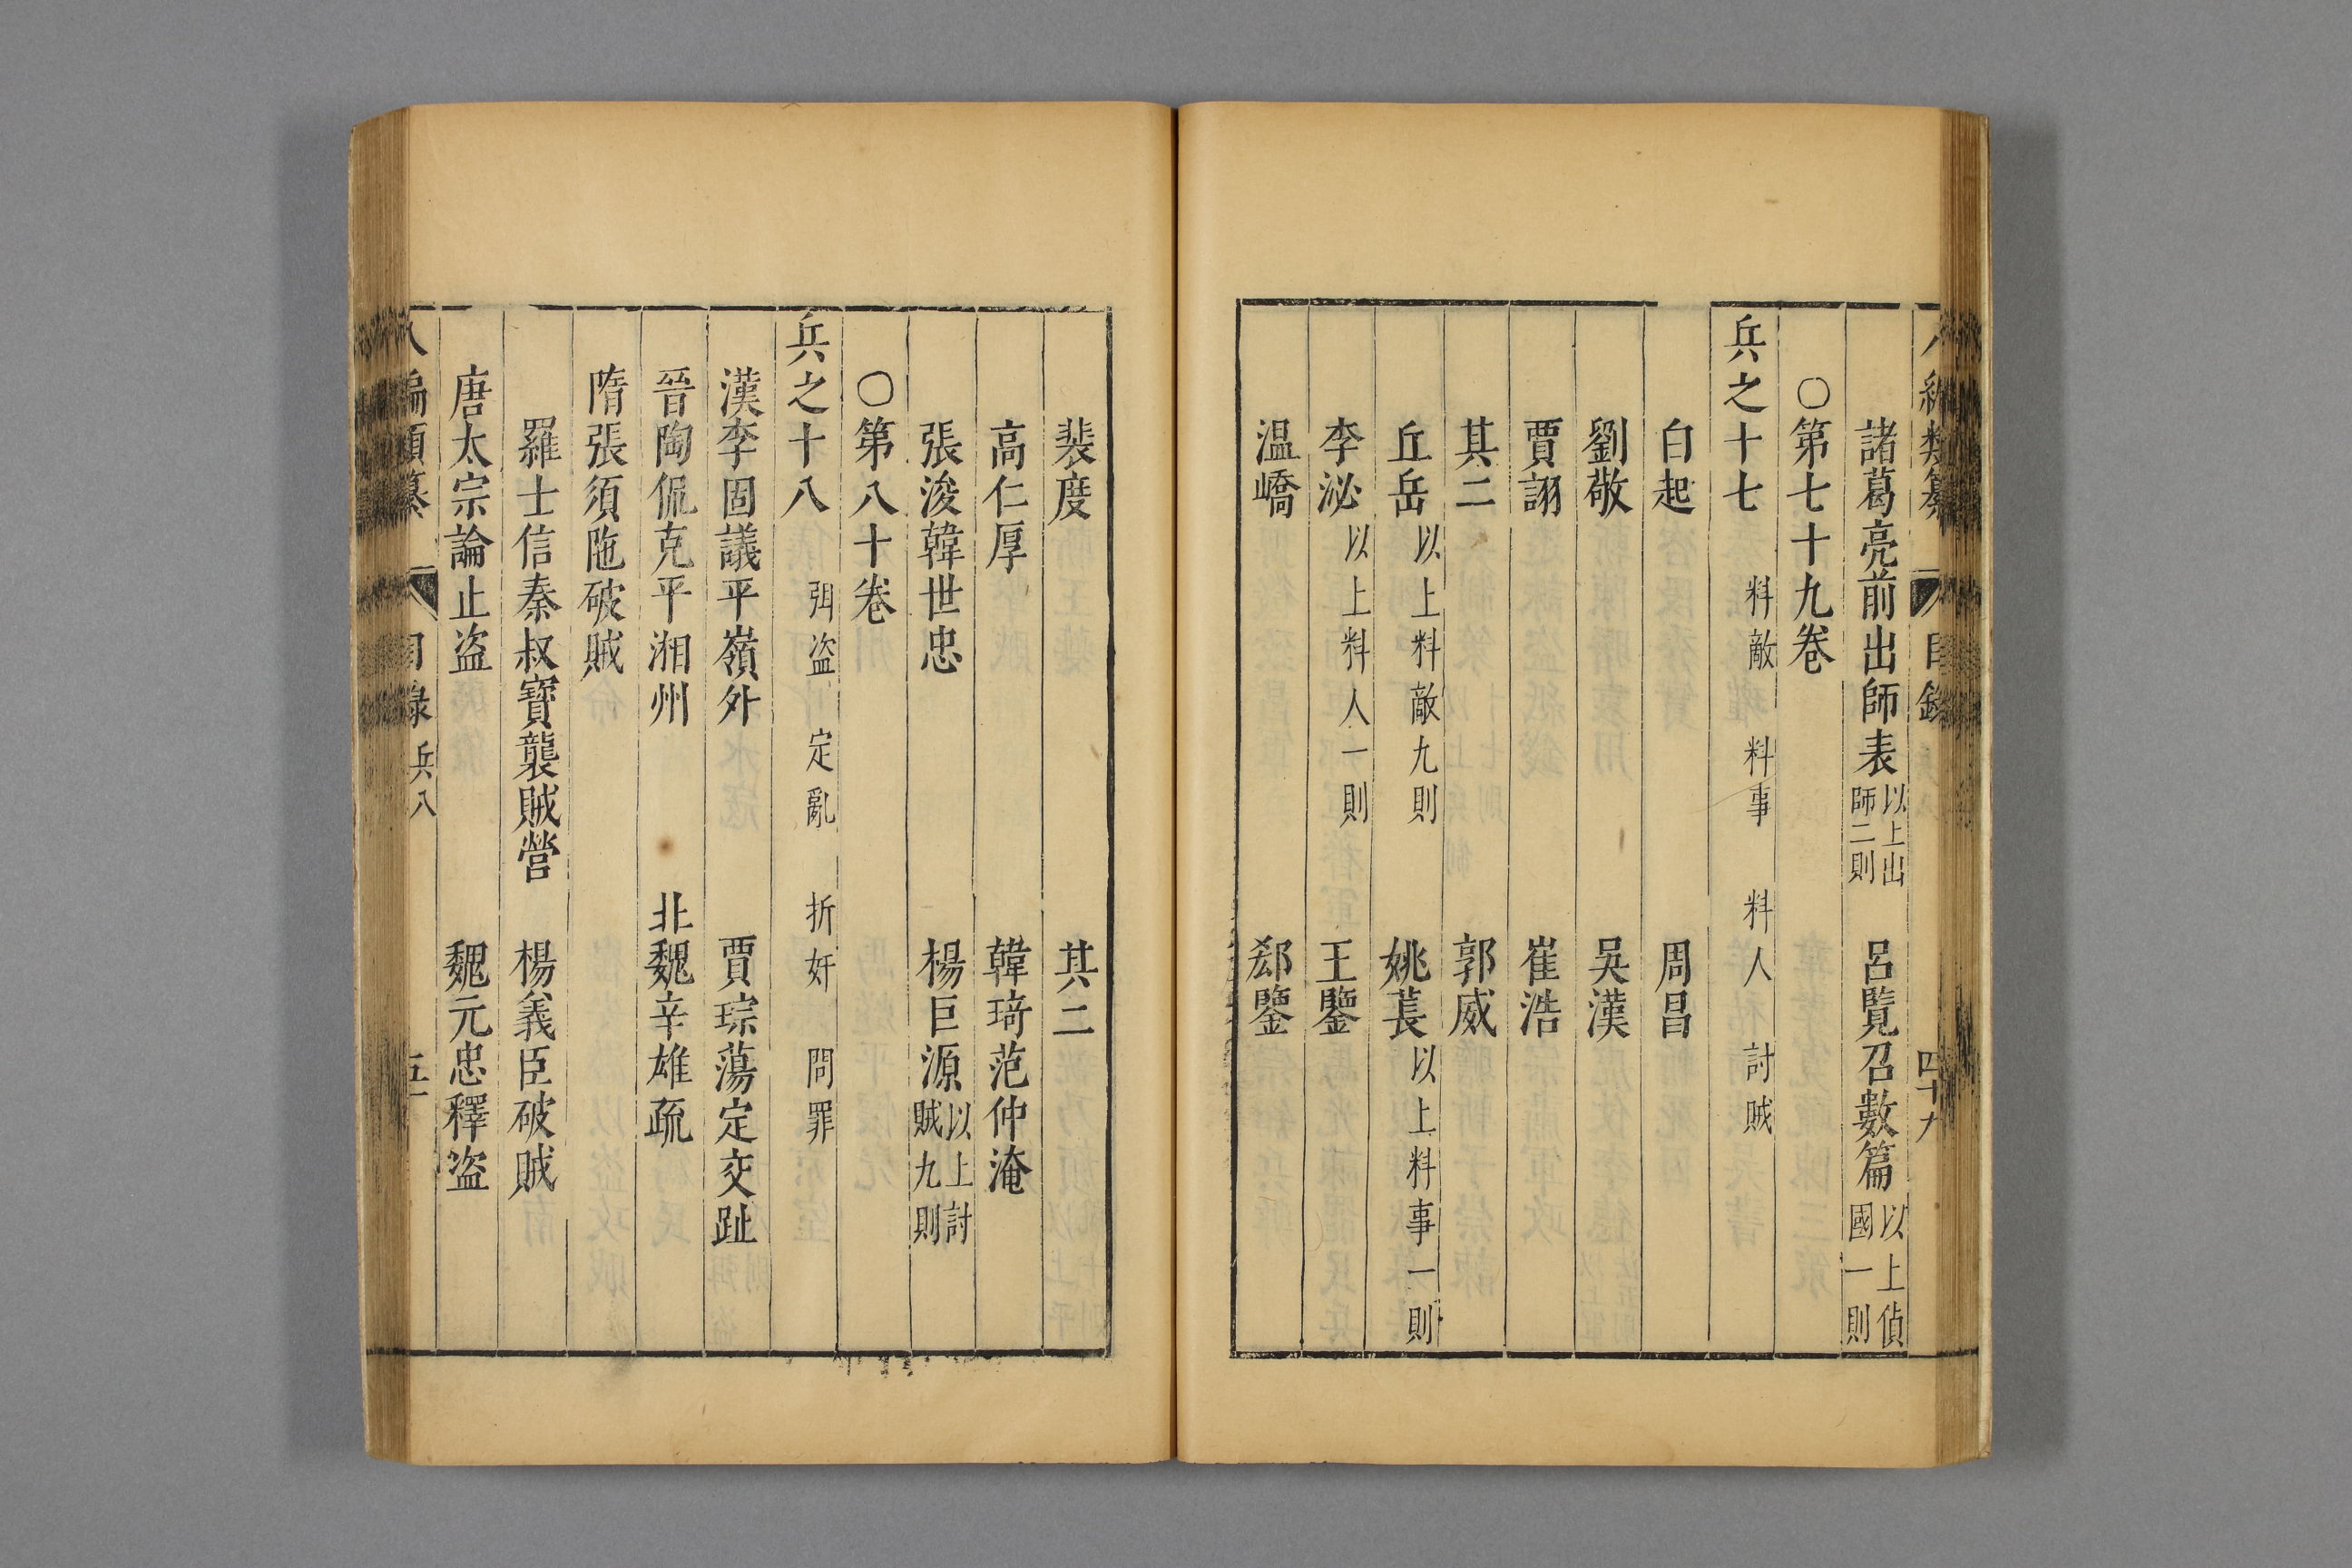 八編類纂 目錄 四十九
諸葛亮前出師表 以上出師二則 呂覽召數篇 以上偵國一則
○第七十九卷
兵之十七 料敵 料事 料人 討賊
白起 周昌
劉敬 吳漢
賈詡 崔浩
其二 郭威
丘岳 以上料敵九則 姚萇 以上料事一則
李泌 以上料人一則 王鑒
温嶠 郄鑒
裴度 其二
高仁厚 韓琦范仲淹
張浚韓世忠 楊巨源 以上討賊九則
○第八十卷
兵之十八 弭盜 定亂 折奸 問罪
漢李固議平嶺外 賈琮蕩定交趾
晉陶侃克平湘州 北魏辛雄疏
隋張須陁破賊
羅士信秦叔寶襲賊營 楊義臣破賊
唐太宗論止盜 魏元忠釋盜
八編類纂 目錄 兵八